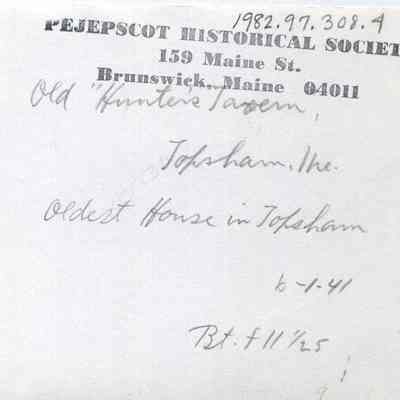 1982.97.308.4
PEJEPSCOT HISTORICAL SOCIET
159 Maine St.
Brunswick, Maine 04011
Old "Hunter's Tavern,
Topsham, Me.
Oldest House in Topsham
6-1-41
Bt. f 11 1/25